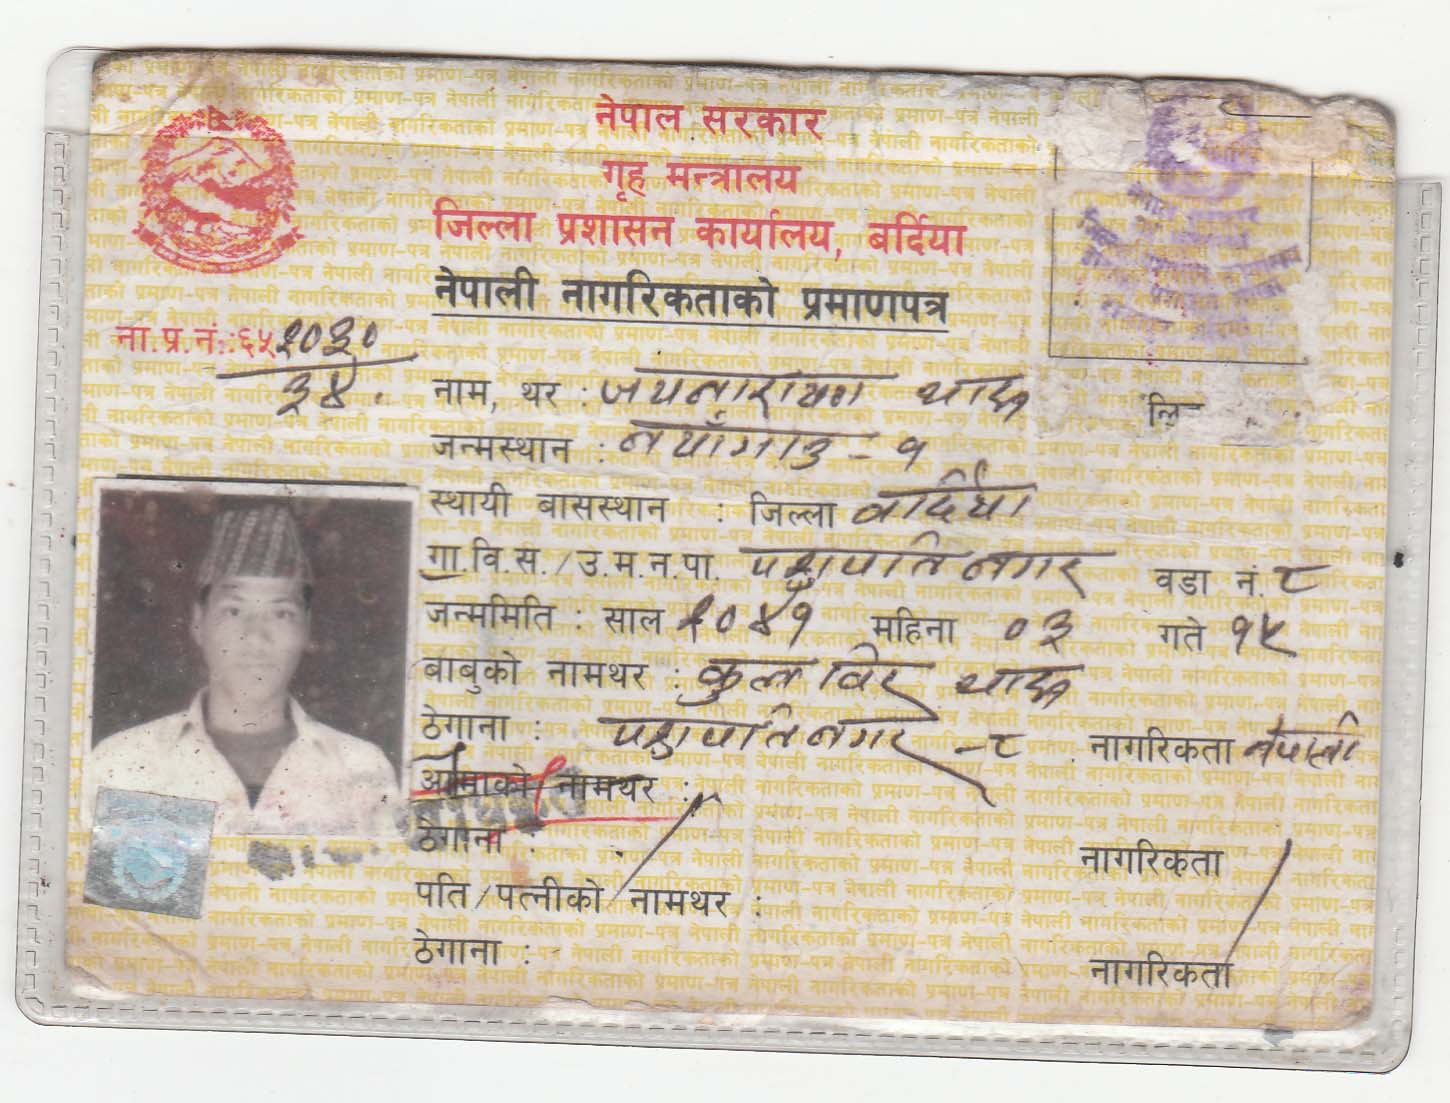 नेपाल सरकार
गृह मन्त्रालय
जिल्ला प्रशासन कार्यालय, बर्दिया
नेपाली नागरिकताको प्रमाणपत्र
ना.प्र.नं.:६५२०३०
३४.
नाम, थर : जयनारायण थारू
लि
जन्मस्थान : नयाँगाउ - १
स्थायी बासस्थान : जिल्ला बर्दिया
गा.वि.स./उ.म.न.पा. पशुपतिनगर वडा नं. ८
जन्ममिति : साल २०४१ महिना ०३ गते १५
बाबुको नामथर : कुल विर थारू
ठेगाना : पशुपतिनगर - ८ नागरिकता नेपाली
आमाको नामथर :
ठेगाना : नागरिकता
पति/पत्नीको नामथर :
ठेगाना : नागरिकता